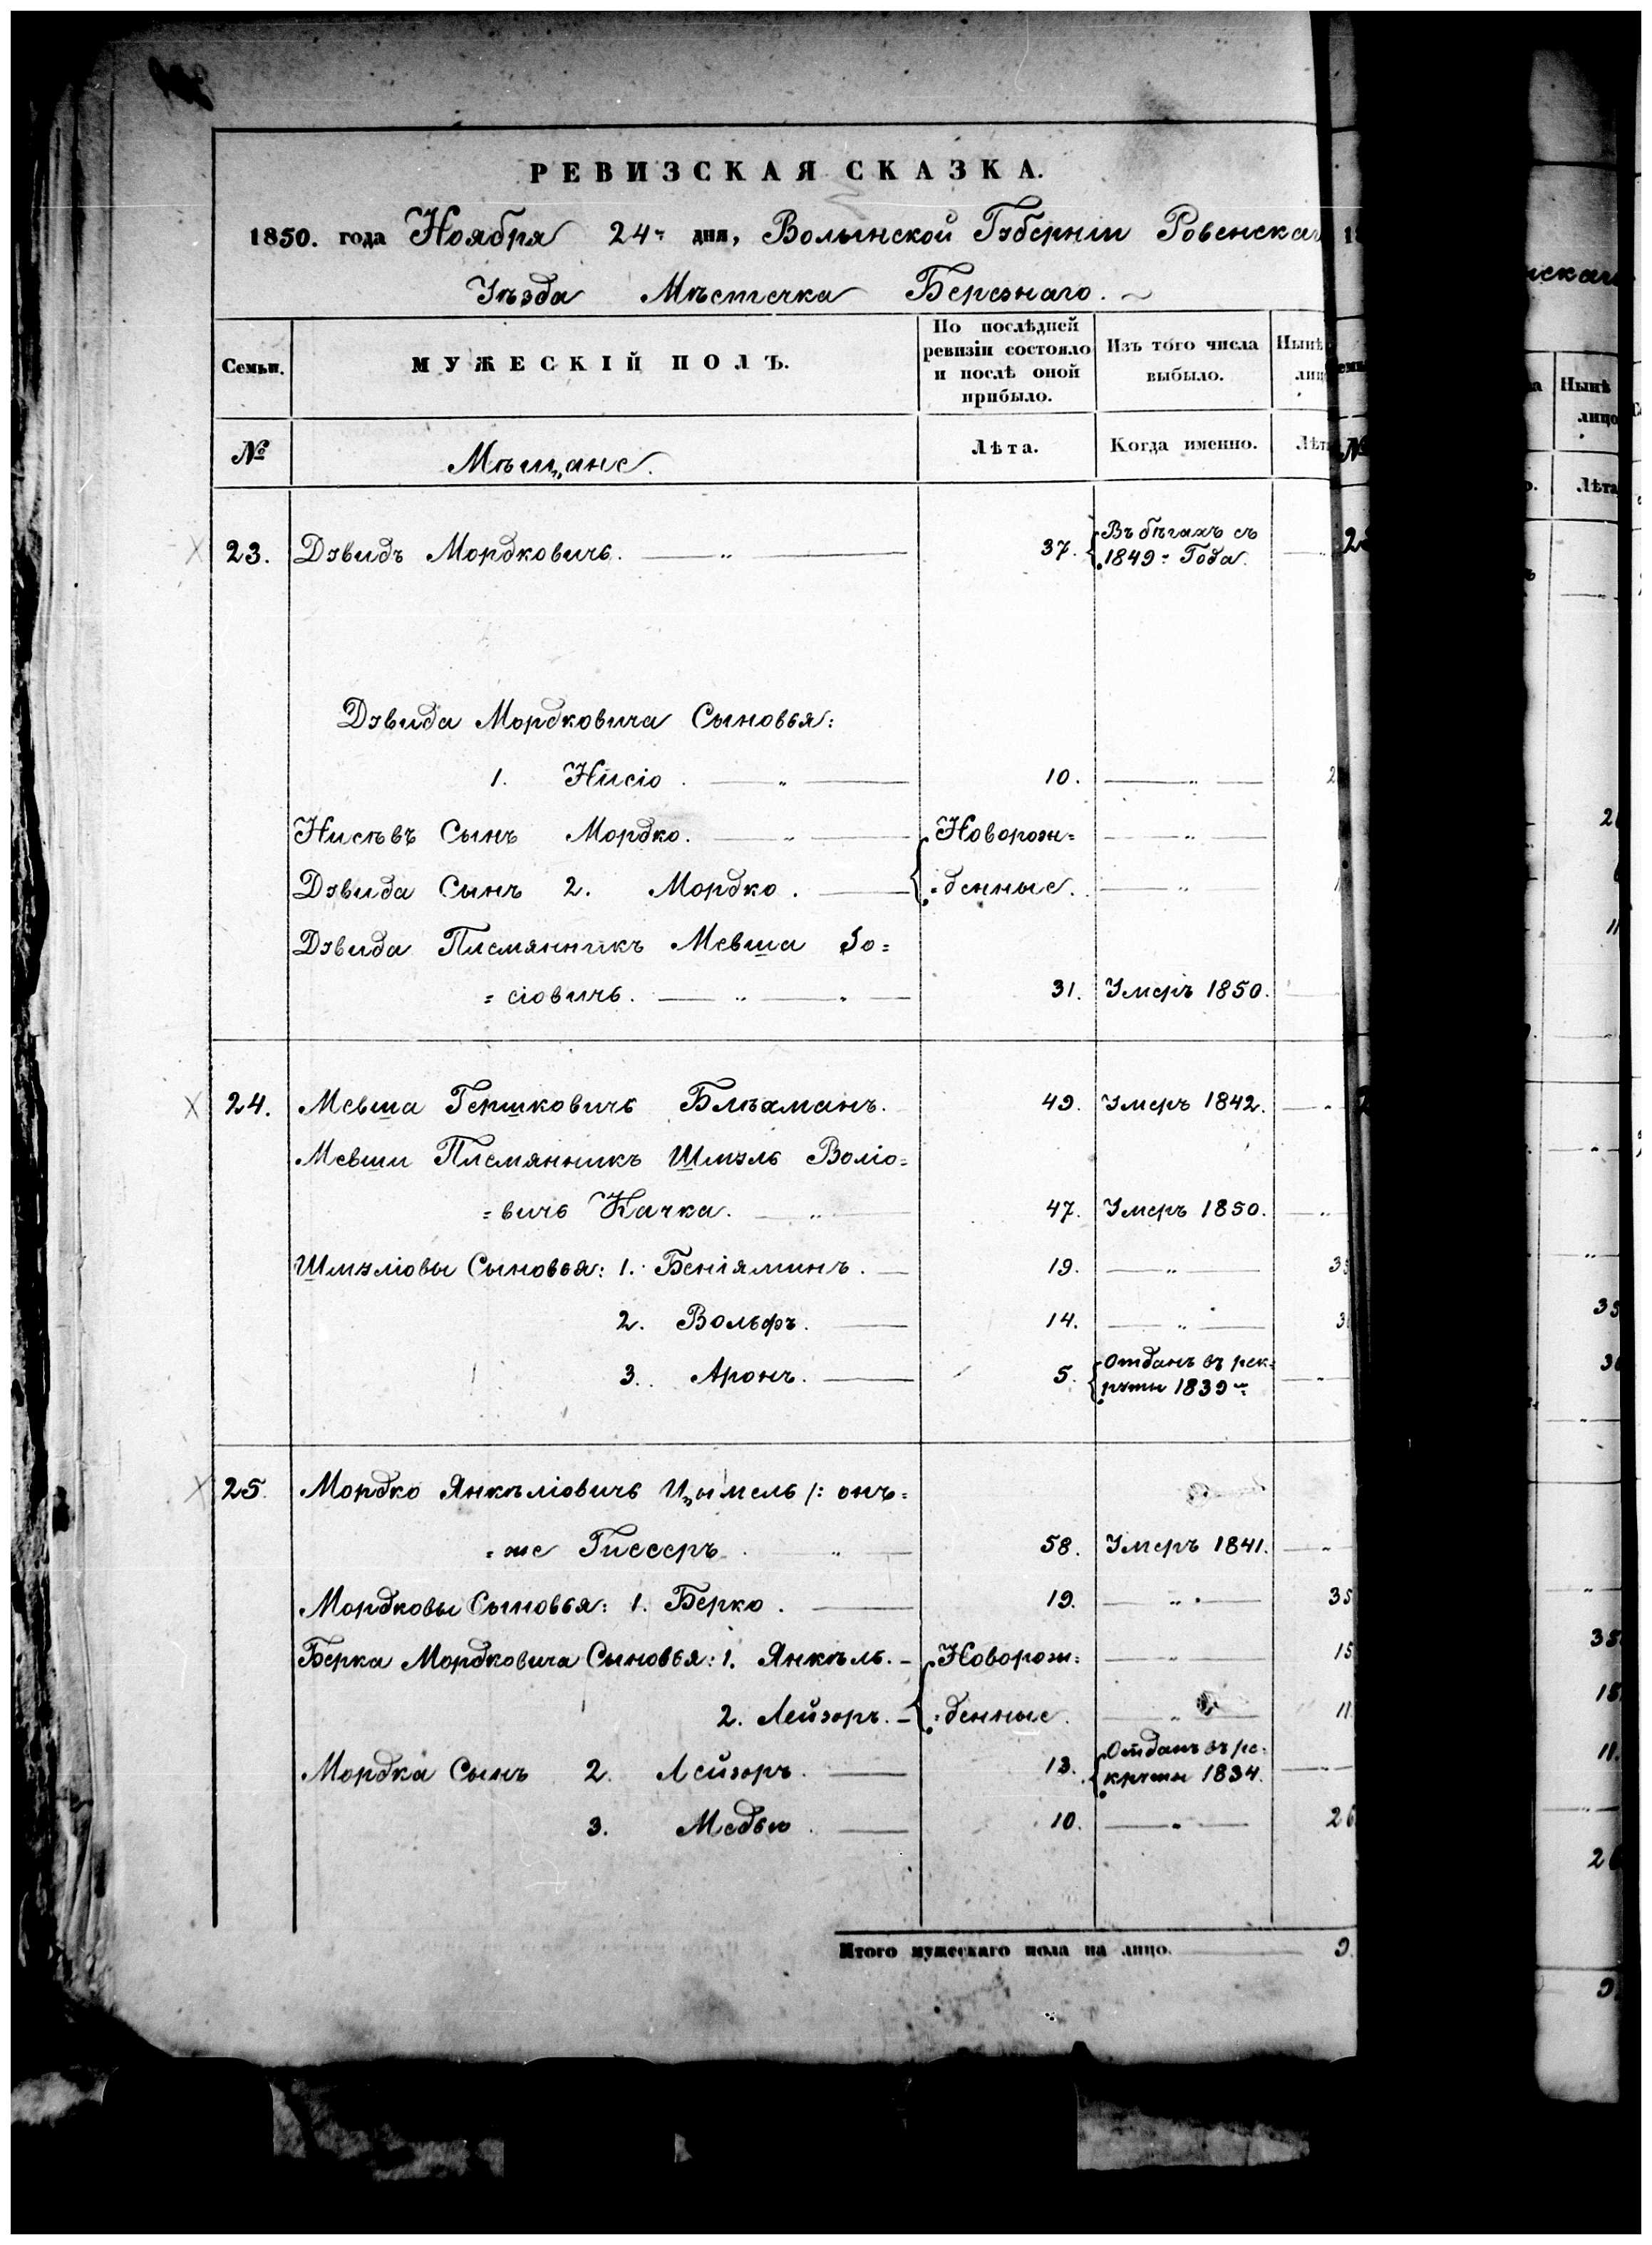 РЕВИЗСКАЯ СКАЗКА.
1850. года Ноября 24го дня, Волынской Губерніи Ровенскаго
Уѣзда Мѣстечка Березнаго.
Семьи. МУЖЕСКІЙ ПОЛЪ. По послѣдней ревизіи состояло и послѣ оной прибыло. Изъ того числа выбыло. Нынѣ
№ Мѣщане. Лѣта. Когда именно. Лѣт
23. Дувидъ Мордковичь. 37. Въ бѣгахъ съ
1849го Года.
Дувида Мордковича Сыновья:
1. Нисіо. 10.
Нисѣвъ Сынъ Мордко. Новорож=
Дувида Сынъ 2. Мордко. =денные.
Дувида Племянникъ Мевша Іо=
=сіовичь. 31. Умеръ 1850.
24. Мевша Гершковичь 49. Умеръ 1842.
Мевши Племянникъ Шмуль Воліо=
=вичь Качка. 47. Умеръ 1850.
Шмуліовы Сыновья: 1. Беніяминъ. 19.
2. Вольфъ. 14.
3. Аронъ. 5. Отданъ въ рек=
руты 1839го
25. Мордко Янкѣліовичь Цымель /: онъ=
=же Гиссеръ 58. Умеръ 1841.
Мордковы Сыновья: 1. Берко. 19. 35
Берка Мордковича Сыновья: 1. Янкѣль. Новорож= 15
2. Лейзоръ. =денные. 11
Мордка Сынъ 2. Лейзоръ. 13. Отданъ въ ре=
круты 1834.
3. 10. 26
Итого мужескаго пола на лицо. 9.